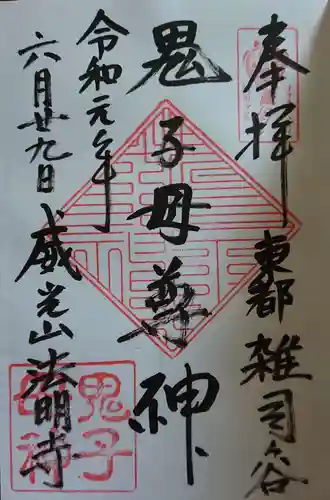 奉拝
東都雑司ケ谷
鬼子母尊神
令和元年
六月廿九日
威光山法明寺
鬼子
母神